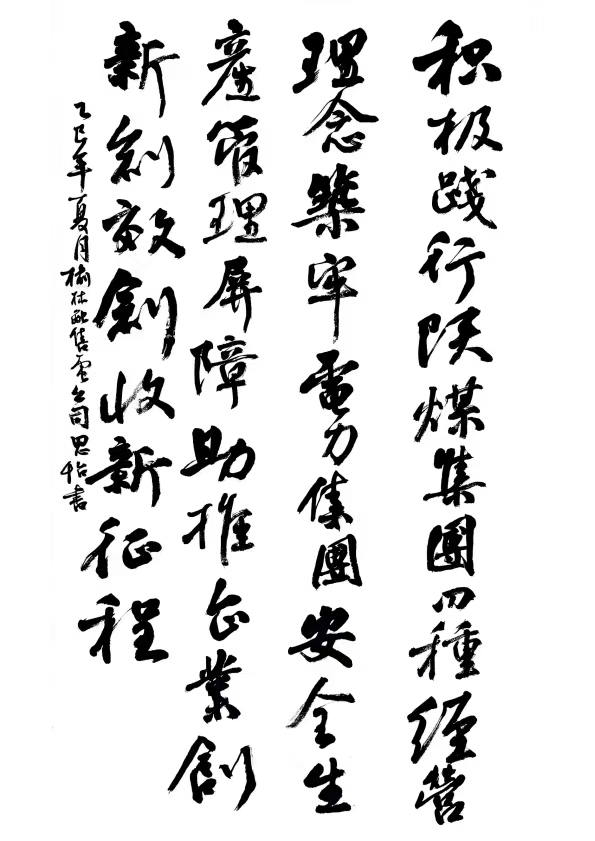 积极践行陕煤集團四種經營
理念築牢電力集團安全生
產管理屏障助推企業創
新創效創收新征程
乙巳年夏月榆林配售電公司思怡書